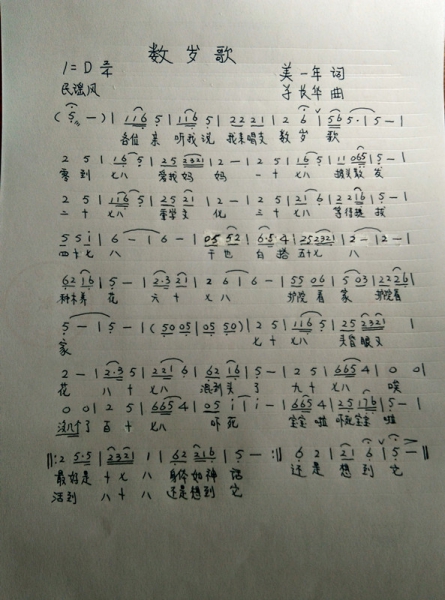 数岁歌
1=D 2/4 美一年 词
民谣风 长华 曲
(5 -) | 116 5 | 116 5 | 22 21 | 2 6 | 56 5· | 5 - |
各位亲 听我说 我来唱支 数岁歌
2 5 | 116 5 | 25 2321 | 2 - | 2 5 | 116 5 | 11 065 | 5 - |
零到十七八 爱我妈妈 一十七八 搞关数发
2 5 | 116 5 | 25 21 | 2 - | 2 5 | 21 6 | 22 16 | 5 - |
二十七八 要学文化 三十七八 等得提拔
5 5 i | 6 - | 6 - | 05 52 | 6·5 4 | 25 2321 | 2 - | 2 - |
四十七八 干也白 五十七八
62 16 | 5 - | 2·3 21 | 2 6 | 6 - | 55 06 | 5 03 | 22 26 |
种木养花 六十七八 护院看家 护院看
5 - | 5 - | (50 05 | 05 50) | 2 5 | 116 5 | 25 2321 |
家 七十七八 眼又
2 - | 2·3 5 | 221 6 | 62 16 | 5 - | 2 5 | 665 4 | 0 0 |
花 八十七八 混到头了 九十七八 唉
0 0 | 2 5 | 665 4 | 05 i | i - | 665 4 | 25 176 | 5 - |
没几个了 百十七八 吓死 宝宝啦 吓死宝宝啦
‖: 2 5·5 | 2321 1 | 62 216 | 5 - :‖ 6 2 | 21 6 | 5 - |
最好是十七八 身体如神话 还是想到它
活到八十八 还是想到它